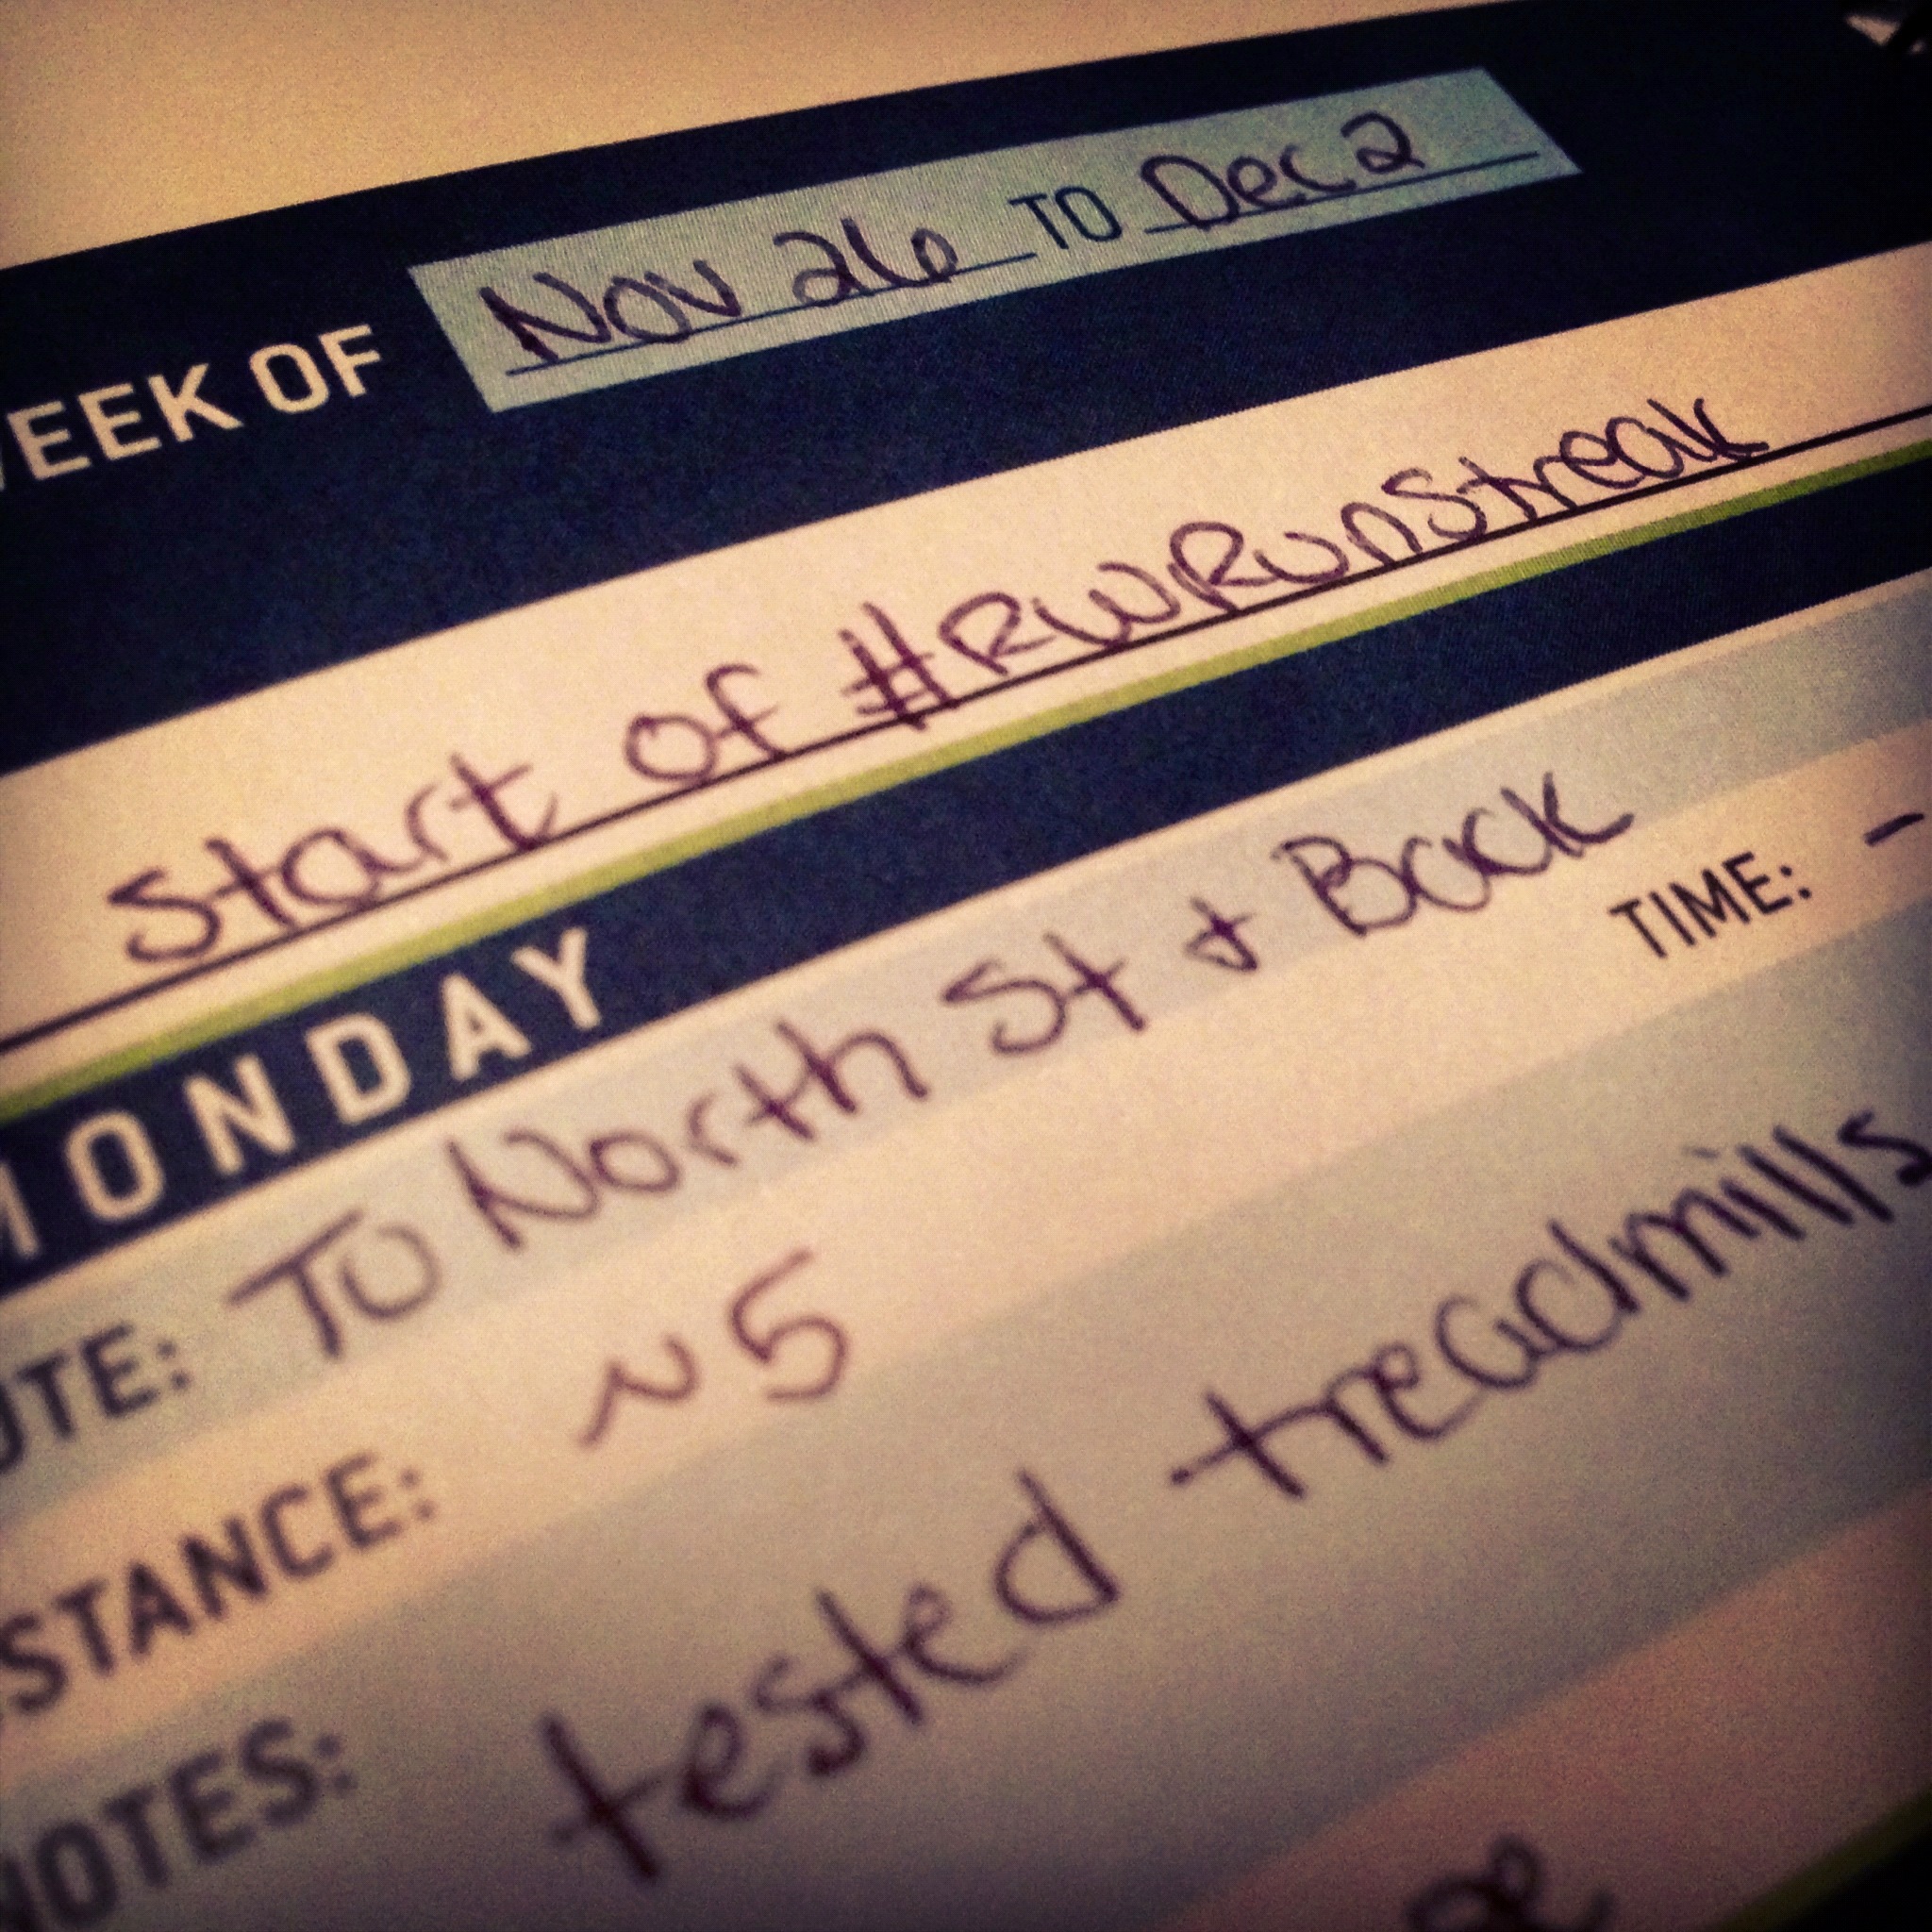 EEK OF Nov 26 TO Dec 2
Start of #RWRunStreak
MONDAY
UTE: To North St + Back
STANCE: ~5 TIME: -
NOTES: tested treadmills